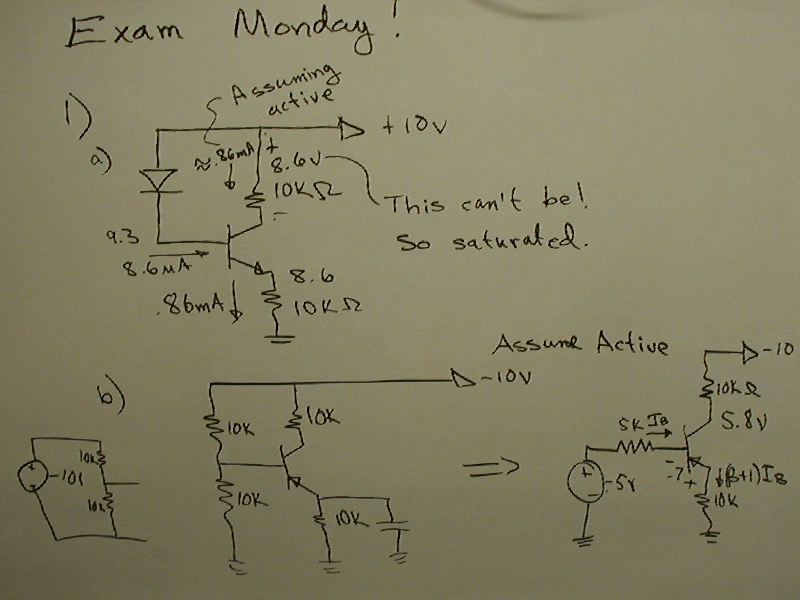 Exam Monday!
Assuming
active
1)
a)
+10V
≈.86mA
+
8.6V
10KΩ
-
This can't be!
So saturated.
9.3
8.6μA
8.6
.86mA
10KΩ
Assume Active
-10
-10V
b)
10K
10K
10KΩ
5K IB
5.8V
10K
-10V
10K
10K
10K
+
-
-5V
-
.7
+
(β+1)IB
10K